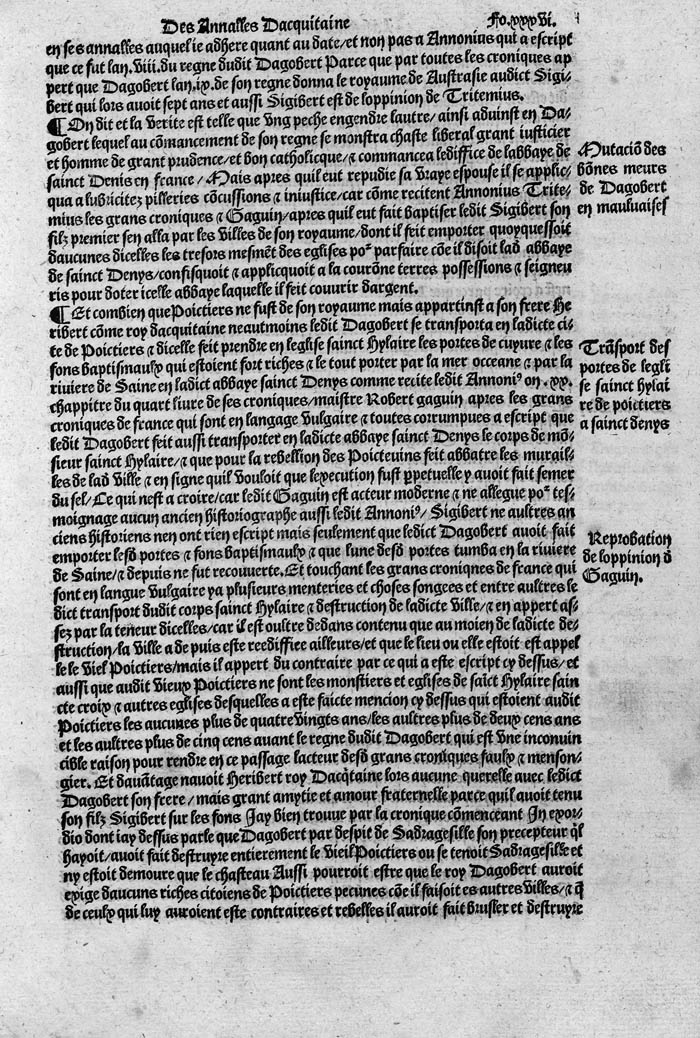 Des Annalles Dacquitaine
Fo.xxxvi.
en ses annalles auquel ie adhere quant au date/et non pas a Annonius qui a escript
que ce fut lan.viii.du regne dudit Dagobert Parce que par toutes les croniques ap
pert que Dagobert lan.ix.de son regne donna le royaume de Austrasie audict Sigi-
bert qui lors auoit sept ans et aussi Sigibert est de loppinion de Tritemius.
¶ On dit et la verite est telle que vng peche engendre lautre/ainsi aduinst en Da-
gobert lequel au cōmancement de son regne se monstra chaste liberal grant iusticier
et homme de grant prudence/et bon catholicque/⁊ commancea lediffice de labbaye de
sainct Denis en france/Mais apres quil eut repudie sa vraye espouse il se applic-
qua a lubricitez pilleries cōcussions ⁊ iniustice/car cōme recitent Annonius Trite-
mius les grans croniques ⁊ Gaguin/apres quil eut fait baptiser ledit Sigibert son
filz premier sen alla par les villes de son royaume/dont il feit emporter quoyquessoit
daucunes dicelles les tresors mesmēt des eglises poᵘʳ parfaire cōe il disoit lad abbaye
de sainct Denys/confisquoit ⁊ applicquoit a la courōne terres possessions ⁊ seigneu
ris pour doter icelle abbaye laquelle il feit couurir dargent.
¶ Et combien que Poictiers ne fust de son royaume mais appartinst a son frere He
ribert cōme roy dacquitaine neautmoins ledit Dagobert se transporta en ladicte ci-
te de Poictiers ⁊ dicelle feit prendre en leglise sainct Hylaire les portes de cuyure ⁊ les
fons baptismaulx qui estoient fort riches ⁊ le tout porter par la mer occeane ⁊ par la
riuiere de Saine en ladict abbaye sainct Denys comme recite ledit Annoniꝰ on .xx.
chappitre du quart liure de ses croniques/maistre Robert gaguin apres les grans
croniques de france qui sont en langage vulgaire ⁊ toutes corrumpues a escript que
ledit Dagobert feit aussi transporter en ladicte abbaye sainct Denys le corps de mō-
sieur sainct Hylaire/⁊ que pour la rebellion des Poicteuins feit abbatre les murail-
les de lad ville ⁊ en signe quil vouloit que lexecution fust ꝑpetuelle y auoit fait semer
du sel/Ce qui nest a croire/car ledit Gaguin est acteur moderne ⁊ ne allegue poᵘʳ tes-
moignage aucun ancien historiographe aussi ledit Annoniꝰ/Sigibert ne aultres an
ciens historiens nen ont rien escript mais seulement que ledict Dagobert auoit fait
emporter lesd portes ⁊ fons baptismaulx ⁊ que lune desd portes tumba en la riuiere
de Saine/⁊ depuis ne fut recouuerte. Et touchant les grans croniques de france qui
sont en langue vulgaire ya plusieurs menteries et choses songees et entre aultres le
dict transport dudit corps sainct Hylaire ⁊ destruction de ladicte ville/⁊ en appert as-
sez par la teneur dicelles/car il est oultre dedans contenu que au moien de ladicte de-
struction/la ville a de puis este reediffiee ailleurs/et que le lieu ou elle estoit est appel
le le viel Poictiers/mais il appert du contraire par ce qui a este escript cy dessus/et
aussi que audit vieux Poictiers ne sont les monstiers et eglises de saict Hylaire sain
cte croix ⁊ autres eglises desquelles a este faicte mencion cy dessus qui estoient audit
Poictiers les aucunes plus de quatre vingts ans/les aultres plus de deux cens ans
et les aultres plus de cinq cens auant le regne dudit Dagobert qui est vne inconuin
cible raison pour rendre en ce passage lacteur desd grans croniques faulx ⁊ menson-
gier. Et dauātage nauoit Heribert roy Dacq̄taine lors aucune querelle auec ledict
Dagobert son frere/mais grant amytie et amour fraternelle parce quil auoit tenu
son filz Sigibert sur les fons Jay bien trouue par la cronique cōmenceant In exor-
dio dont iay dessus parle que Dagobert par despit de Sadragesille son precepteur q̄l
hayoit/auoit fait destruyre entierement le vieil Poictiers ou se tenoit Sadragesille et
ny estoit demoure que le chasteau Aussi pourroit estre que le roy Dagobert auroit
exige daucuns riches citoiens de Poictiers pecunes cōe il faisoit es autres villes/⁊ q̄
de ceulx qui luy auroient este contraires et rebelles il auroit fait brusler et destruyre
Mutaciō des
bōnes meurs
de Dagobert
en mauluaises
Trāsport des
portes de legli
se sainct hylai
re de poictiers
a sainct denys
Reprobation
de loppinion d̄
Gaguin.